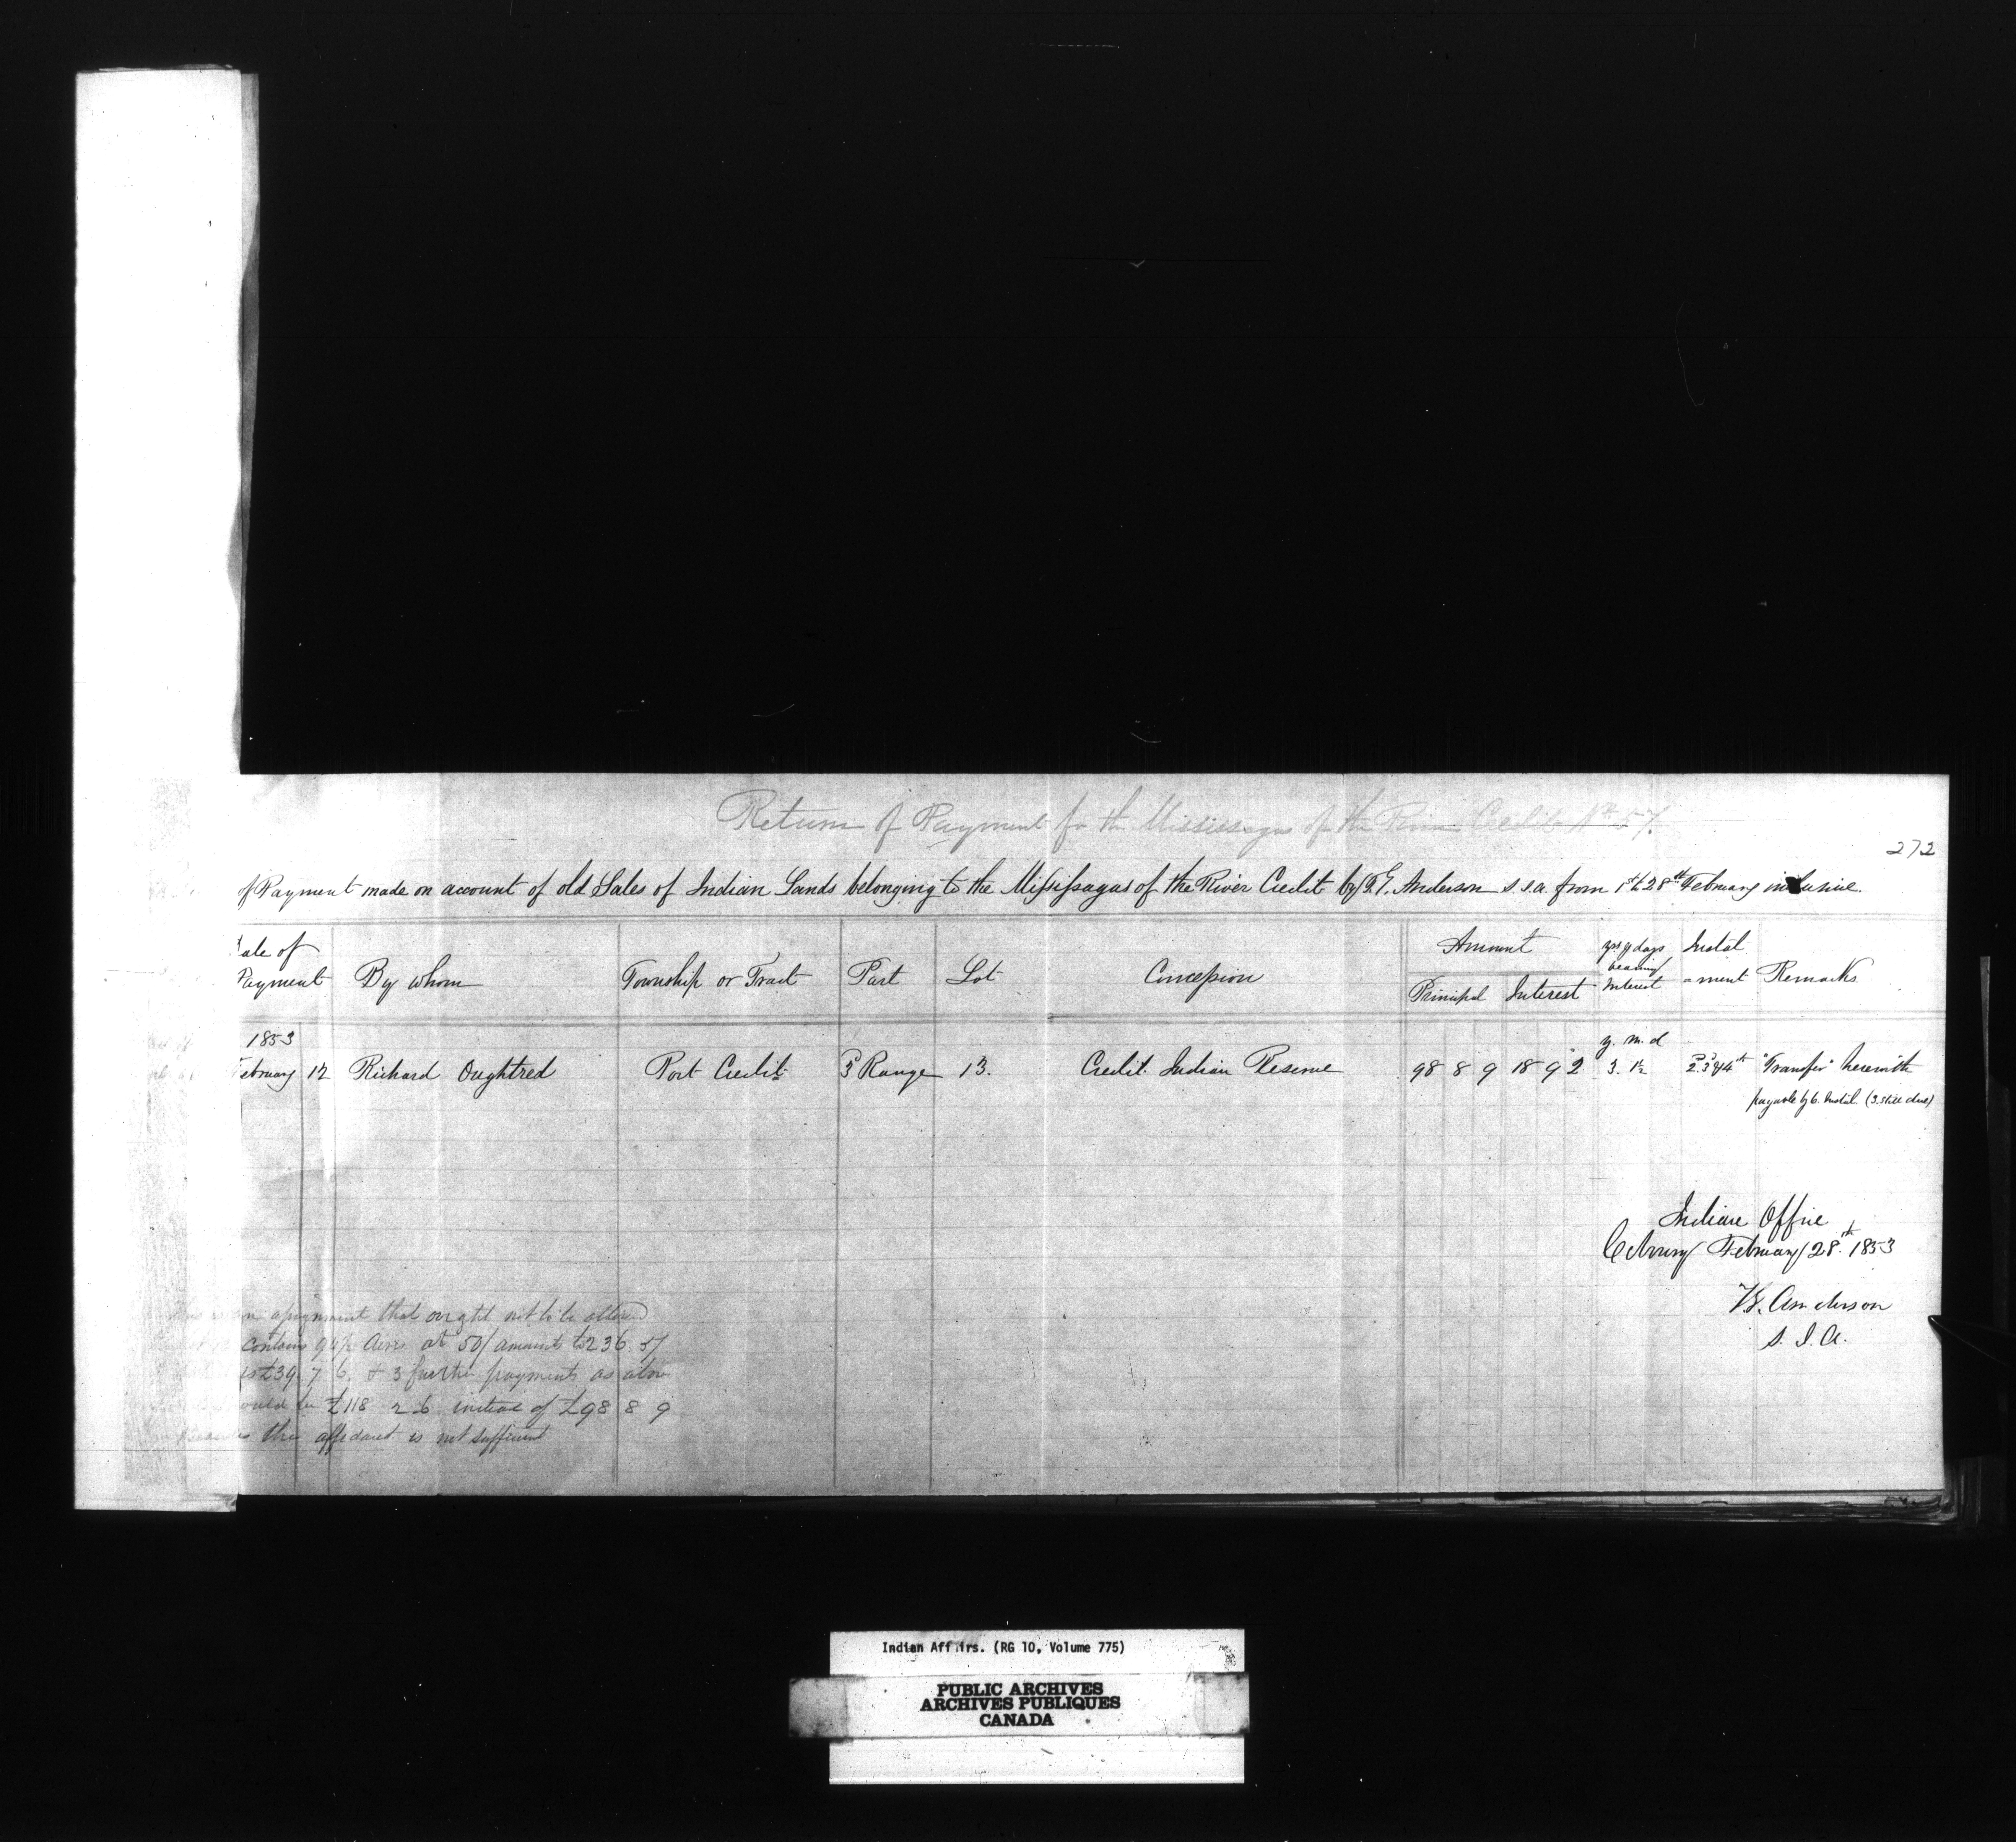 Return of Payment for the Mississagas of the River Credit No 57.
272
of Payment made on account of old Sales of Indian Lands belonging to the Missisagas of the River Credit by T.G. Anderson S.I.A. from 1st to 28th February inclusive.
Date of Payment By whom Township or Tract Part Lot Concession Amount Principal Interest yrs & days bearing Interest Instalment Remarks
1853 y. m. d
February 12 Richard Oughtred Port Credit 3 Range 13. Credit Indian Reserve 98 8 9 18 9 2 3. 2. 3 & 4th "Transfer" herewith
payable by 6. Instal. (3. still due)
Indian Office
Cobourg February 28th 1853
T.G. Anderson
S. I. A.
an assignment that ought not to be allowed
contains 94½ Acres at 50/ amounts to 236. 5/
is £39 7 6. & 3 further payments as above
would be £118 2 6 instead of £98 8 9
Besides this affidavit is not sufficient
Indian Affairs. (RG 10, Volume 775)
PUBLIC ARCHIVES
ARCHIVES PUBLIQUES
CANADA